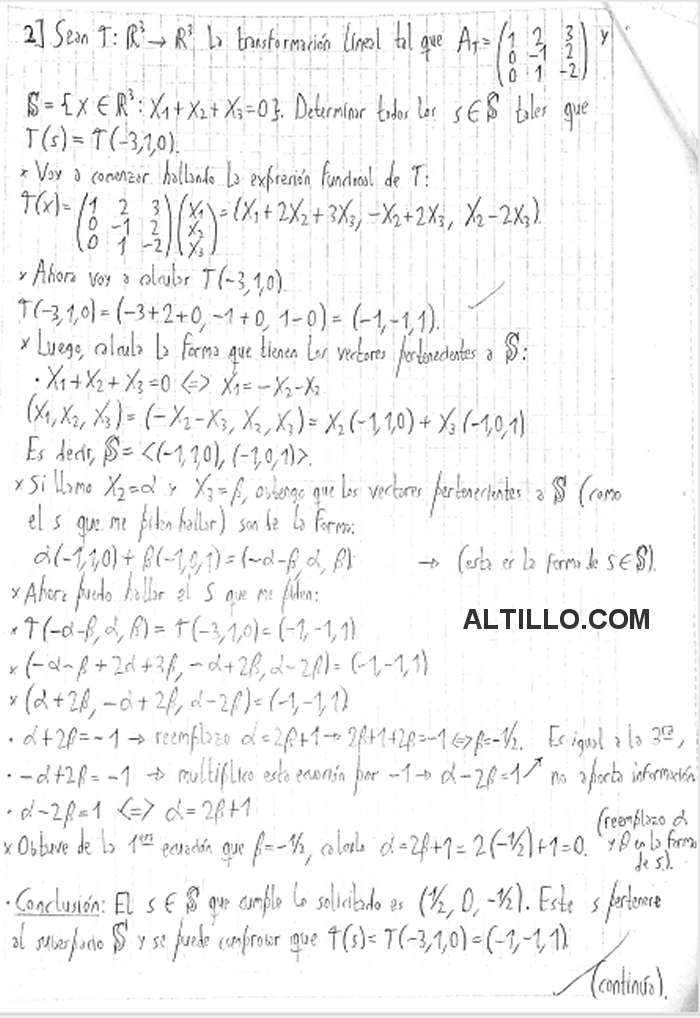 2] Sean T: ℝ³ → ℝ³ la transformación lineal tal que A_T = (1 2 3; 0 -1 2; 0 1 -2) y
𝕊 = {x ∈ ℝ³: x₁+x₂+x₃=0}. Determinar todos los s∈𝕊 tales que
T(s) = T(-3,1,0).
× Voy a comenzar hallando la expresión funcional de T:
T(x) = (1 2 3; 0 -1 2; 0 1 -2)(x₁; x₂; x₃) = (x₁+2x₂+3x₃, -x₂+2x₃, x₂-2x₃).
× Ahora voy a calcular T(-3,1,0)
T(-3,1,0) = (-3+2+0, -1+0, 1-0) = (-1,-1,1).
× Luego, calculo la forma que tienen los vectores pertenecientes a 𝕊:
· x₁+x₂+x₃=0 <=> x₁=-x₂-x₂
(x₁,x₂,x₃) = (-x₂-x₃, x₂, x₃) = x₂(-1,1,0) + x₃(-1,0,1)
Es decir, 𝕊 = <(-1,1,0), (-1,0,1)>.
× Si llamo x₂=α y x₃=β, obtengo que los vectores pertenecientes a 𝕊 (como
el s que me piden hallar) son de la forma:
α(-1,1,0) + β(-1,0,1) = (-α-β, α, β) → (esta es la forma de s∈𝕊).
× Ahora puedo hallar el s que me piden:
× T(-α-β, α, β) = T(-3,1,0) = (-1,-1,1)
× (-α-β+2α+3β, -α+2β, α-2β) = (-1,-1,1)
× (α+2β, -α+2β, α-2β) = (-1,-1,1)
· α+2β=-1 → reemplazo α=2β+1 → 2β+1+2β=-1 <=> β=-1/2. Es igual a la 3ra,
· -α+2β=-1 → multiplico esta ecuación por -1 → α-2β=1 ↗ no aporta información
· α-2β=1 <=> α=2β+1
× Obtuve de la 1era ecuación que β=-1/2, calculo α=2β+1=2(-1/2)+1=0. (reemplazo α
y β en la forma
de s).
· Conclusión: El s∈𝕊 que cumple lo solicitado es (1/2, 0, -1/2). Este s pertenece
al subespacio 𝕊 y se puede comprobar que T(s) = T(-3,1,0) = (-1,-1,1)
(continúa).
ALTILLO.COM